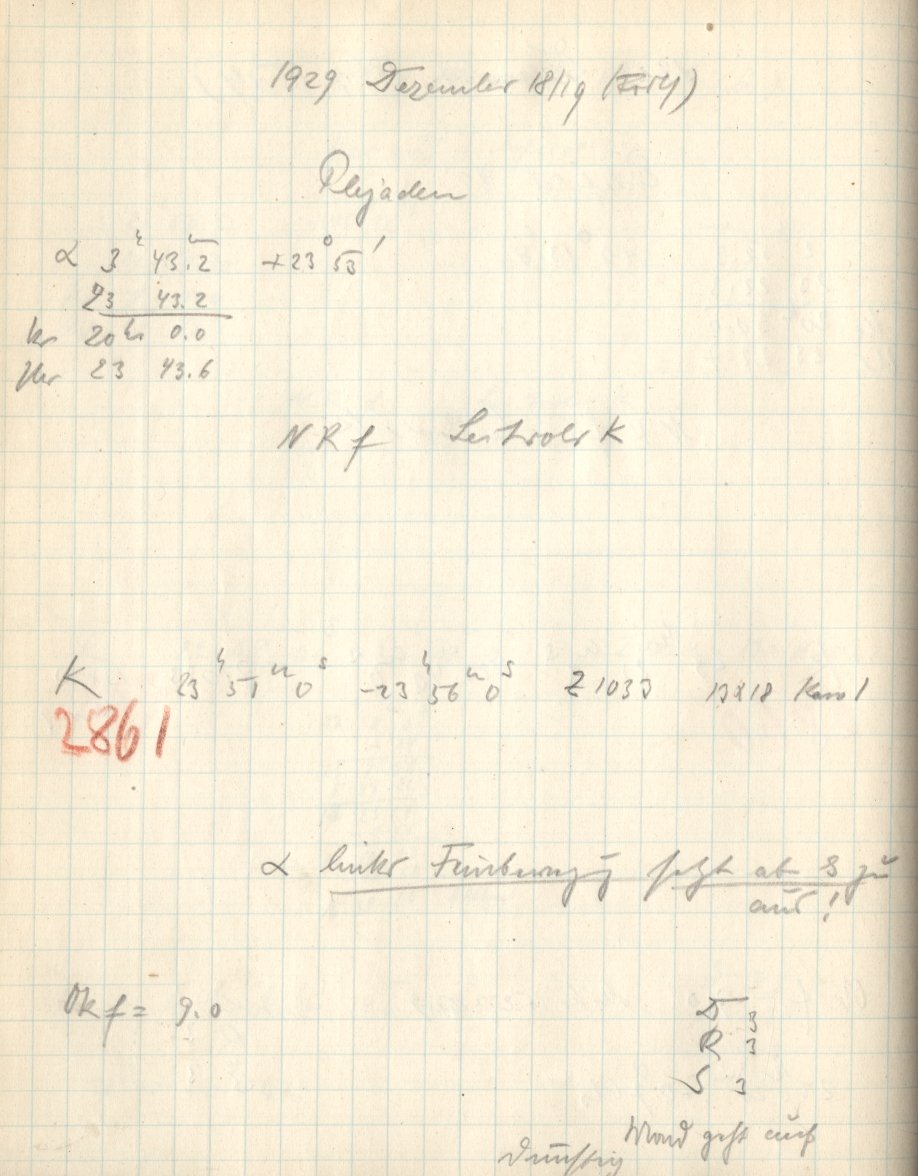 1929 Dezember 18/19
Plejaden
α 3ʰ 43.2ᵐ +23° 53'
23 43.2
kr 20ʰ 0.0
Uhr 23 43.6
NRf Leitrohr K
K 23ʰ 51ᵐ 0ˢ -23ʰ 56ᵐ 0ˢ Z 1033 13x18
2861
α links Feinbewegung setzt ab & zu
aus!
Okf = 9.0
D 3
R 3
S 3
Mond geht auf
dunstig